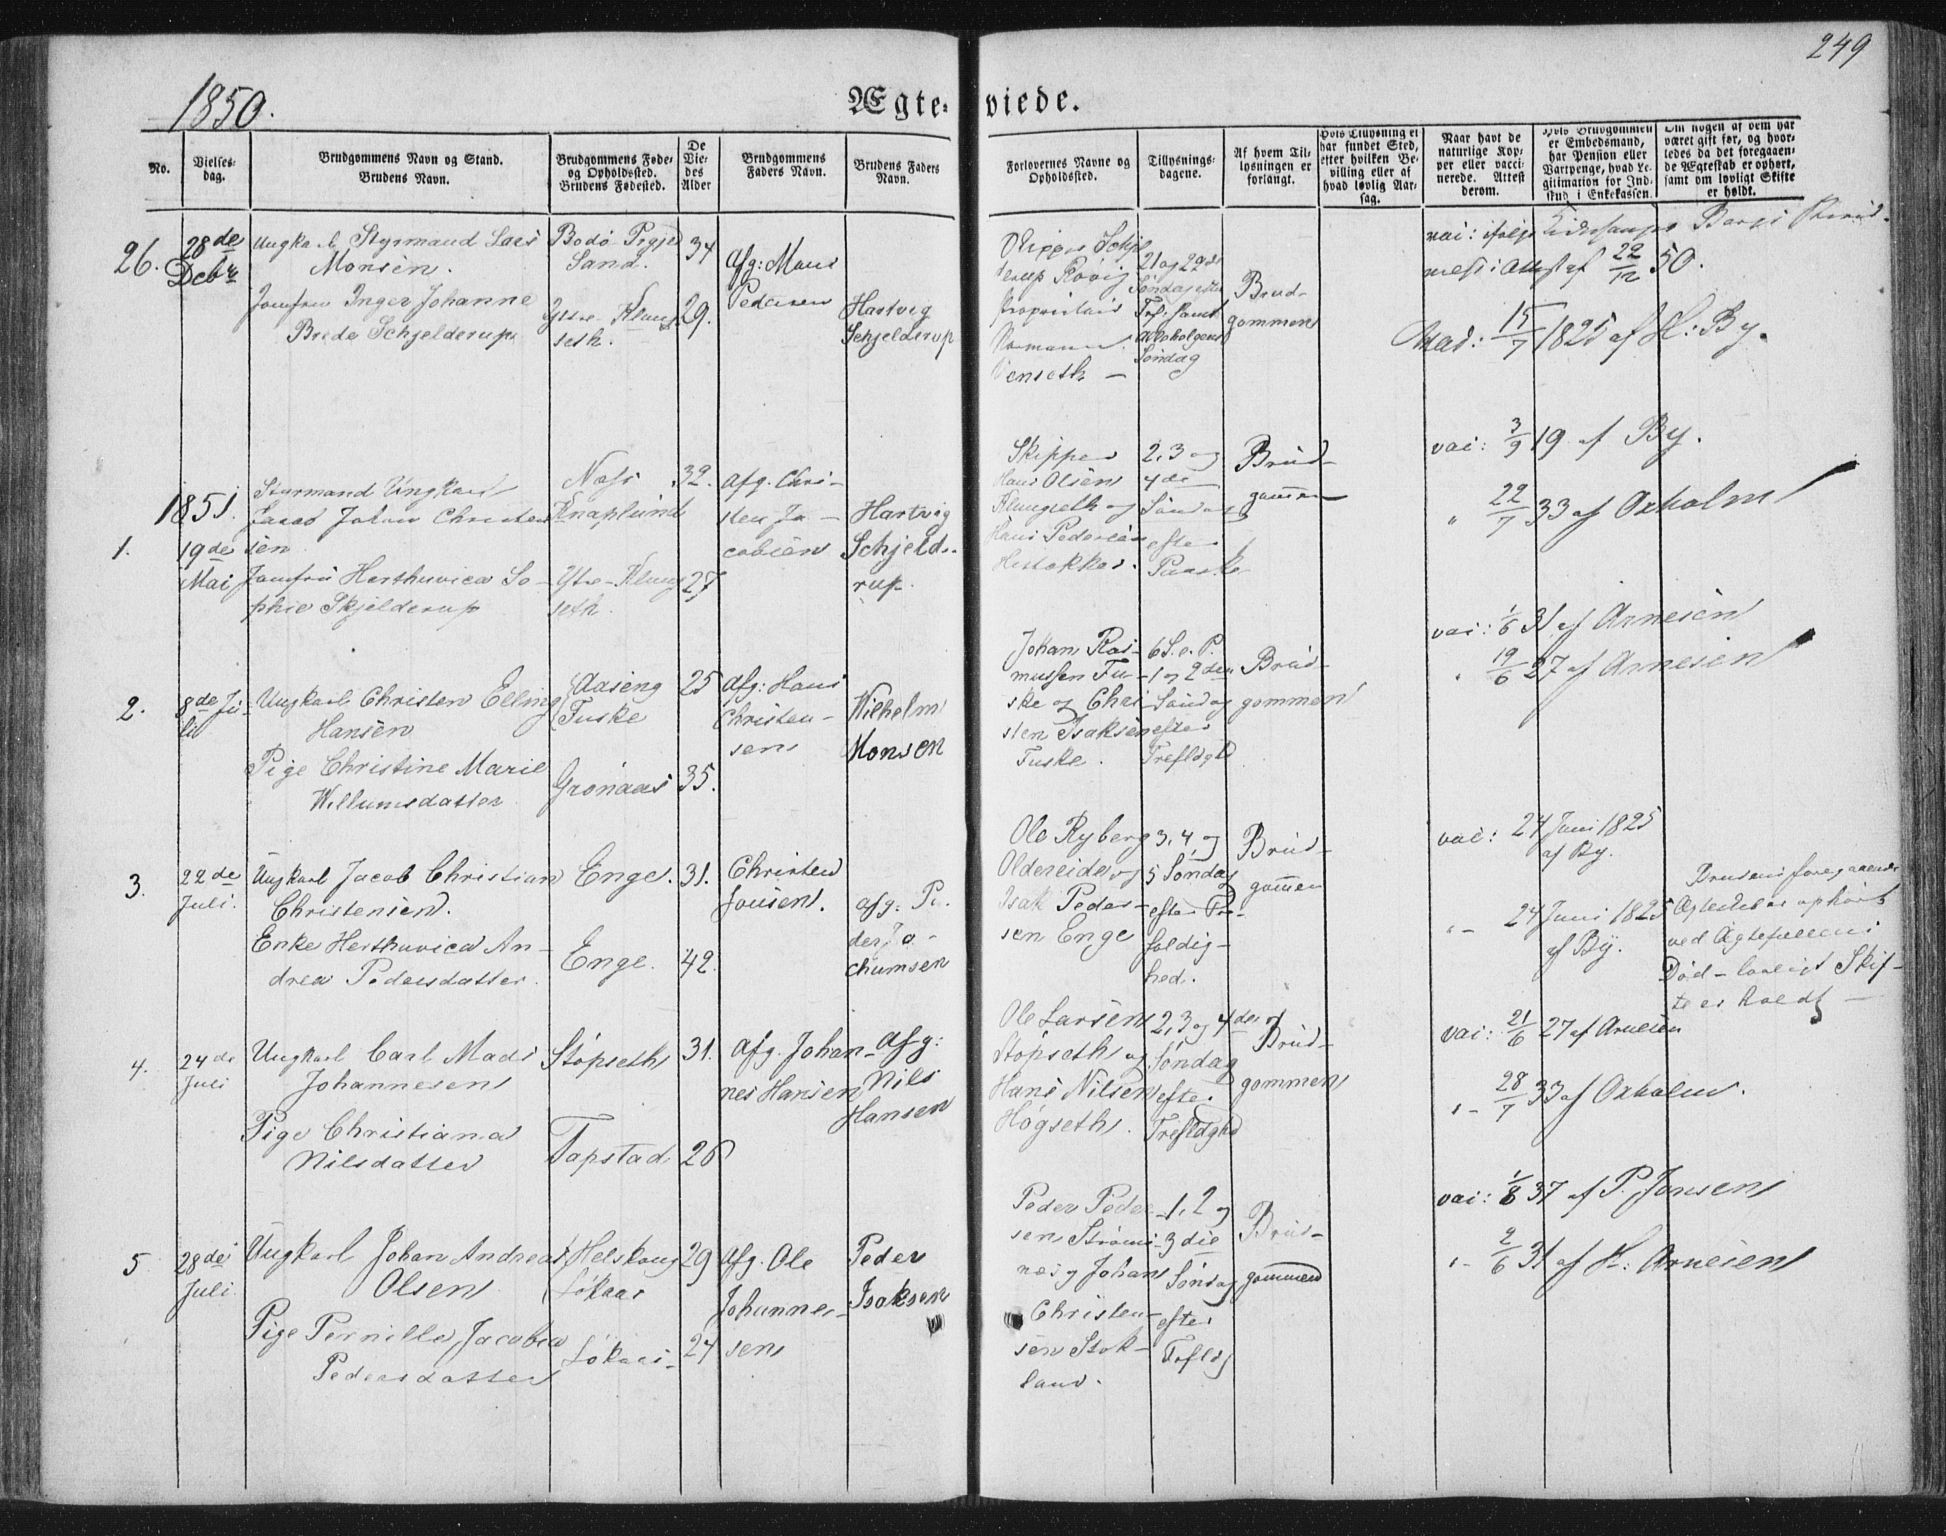 249
1850.
Ægte-viede.
No.
Vielses-
dag.
Brudgommens Navn og Stand.
Brudens Navn.
Brudgommens Føde-
og Opholdssted.
Brudens Fødested.
De
Vie-
des
Alder
Brudgommens
Faders Navn.
Brudens Faders
Navn.
Forlovernes Navne og
Opholdssted.
Tillysnings-
dagene.
Af hvem Til-
lysningen er
forlangt.
Hvis Tillysning ei
har fundet Sted,
efter hvilken Be-
villing eller af
hvad lovlig Aar-
sag.
Naar havt de
naturlige Kop-
per eller vacci-
nerede. Attest
derom.
Hvis Brudgommen
er Embedsmand,
har Pension eller
Vartpenge, hvad Le-
gitimation for Ind-
skud i Enkekassen.
Om nogen af dem har
været gift før, og hvor-
ledes da det foregaaen-
de Ægteskab er ophørt,
samt om lovligt Skifte
er holdt.
26.
28de
Debr
Ungkarl Styrmand Lars
Monsen.
Jomfru Inger Johanne
Brede Schjelderup
Bodø Prgjd
Sand.
Ytre-Klung-
seth.
34
29.
Afg: Mons
Pedersen
Hartvig
Schjelderup
Skipper Schjel
derup Røvig
Proprietair
Normann
21 og 22de
Søndag efter
Tref: samt
Søndag
Brud-
gommen
vai: ifølge
Attest af 22/12 50.
vac: 15/7 1825 af H: By.
1851.
1.
19de
Mai
Styrmand Ungkarl
Jacob Johan Christen
sen
Jomfru Herthuvica So-
phie Skjelderup
Næss
Knaplund
Ytre-Klung
seth.
32.
27
Afg. Chri-
sten Ja-
cobsen
Hartvig
Schjeld-
rup.
Skipper
Hans Olsen
Klungseth og
Hans Pedersen
2, 3 og
4de
Søndag
efter
Paaske
Brud-
gommen
vai: 3/9 19 af By.
" 22/7 33 af Oxholm
2.
8de Ju-
li
Ungkarl Christen Elling
Hansen
Pige Christine Marie
Willumsdatter
Aaseng
Fuske
Grønaas
25
35.
Afg: Hans
Christen-
sen
Wilhelm
Monsen
Johan Ras-
mussen Fu-
ske og Chri-
sten Isaksen
Fuske.
6 S. e. P.
1 og 2den
Søndag
efter
Trefldghd
Brud-
gommen
vai: 1/6 31 af Arnesen
" 19/6 27 af Arnesen
3.
22de
Juli.
Ungkarl Jacob Christian
Christensen.
Enke Herthuvica An-
drea Pedersdatter.
Enge.
Enge.
31.
42.
Christen
Jonsen.
afg. Pe-
der Jo-
chumsen
Ole Ryberg
Oldereide og
Isak Peder-
sen Enge
3, 4, og
5 Søndag
efter Tre-
foldig-
hed.
Brud-
gommen
vac: 24 Juni 1825
af By.
"- 24 Juni 1825
af By.
Brudens foregaaende
Ægteskab er ophørt
ved Ægtefællens
Død - lovligt Skif-
te er holdt -
4.
24de
Juli
Ungkarl Carl Mads
Johannesen
Pige Christiana
Nilsdatter
Støpseth
Tapstad
31.
26
Afg. Johan-
nes Hansen
Afg:
Nils
Hansen
Ole Larsen
Støpseth og
Hans Nilsen
Høgseth.
2, 3 og 4de
Søndag
efter
Trefldghd
Brud-
gommen
vai: 21/6 27 af Arnesen
"- 28/7 33 af Oxholm.
5
28de
Juli.
Ungkarl Johan Andreas
Olsen
Pige Pernille Jacobea
Pedersdatter
Løkaas
Løkaas-
29
24
Afg. Ole
Johannes-
sen
Peder
Isaksen
Peder Peder-
sen Strøms-
næs og Johan
Christen-
sen Stok-
land.
1, 2 og
3die
Søndag
efter
Trfldg
Brud-
gommen
vai: 1/8 37 af P. Jonsen
"- 2/6 31 af H. Arnesen